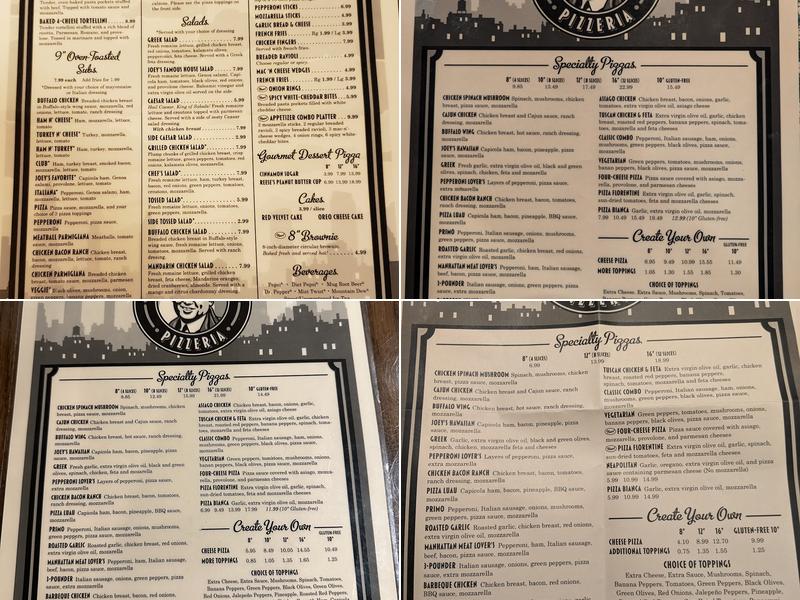 Tender, oven baked pasta pockets stuffed
with beef. Topped with tomato sauce and
mozzarella
BAKED 4-CHEESE TORTELLINI 8.99
Tender tortellini stuffed with a rich blend of
ricotta, Parmesan, Romano, and provo-
lone. Tossed in marinara and topped with
mozzarella
9" Oven-Toasted
Subs.
7.99 each Add fries for 1.99
*Dressed with your choice of mayonnaise
or Italian dressing
BUFFALO CHICKEN Breaded chicken breast
in Buffalo-style wing sauce, mozzarella, red
onions, lettuce, tomato, ranch dressing
HAM N' CHEESE* Ham, mozzarella, lettuce,
tomato
TURKEY N' CHEESE* Turkey, mozzarella,
lettuce, tomato
HAM N' TURKEY* Ham, turkey, mozzarella,
lettuce, tomato
CLUB* Ham, turkey breast, smoked bacon,
mozzarella, lettuce, tomato
JOEY'S FAVORITE* Capicola ham, Genoa
salami, provolone, lettuce, tomato
ITALIANA* Pepperoni, Genoa salami, ham,
mozzarella, lettuce, tomato
PIZZA Pizza sauce, mozzarella, and your
choice of 2 pizza toppings
PEPPERONI Pepperoni, pizza sauce,
mozzarella
MEATBALL PARMIGIANA Meatballs, tomato
sauce, mozzarella
CHICKEN BACON RANCH Chicken breast,
bacon, mozzarella, lettuce, tomato, ranch
dressing
CHICKEN PARMIGIANA Breaded chicken
breast, tomato sauce, mozzarella, parmesan
VEGGIE* Black olives, mushrooms, onions,
green peppers, banana peppers, mozzarella,
pizza toppings on
the front side.
Salads.
*Served with your choice of dressing
GREEK SALAD 7.99
Fresh romaine lettuce, grilled chicken breast,
red onions, tomatoes, kalamata olives,
pepperoncini, feta cheese. Served with a Greek
feta dressing.
JOEY'S FAMOUS HOUSE SALAD 7.99
Fresh romaine lettuce, Genoa salami, Capi-
cola ham, tomatoes, black olives, red onions
and provolone cheese. Italian Balsamic and
extra virgin olive oil served on the side
CAESAR SALAD 5.99
Hail Caesar... King of Salads! Fresh romaine
lettuce, croutons, tomatoes and parmesan cheese.
Served with a side of zesty Caesar
salad dressing
With chicken breast 7.99
SIDE CAESAR SALAD 2.99
GRILLED CHICKEN SALAD* 7.99
Plump chunks of grilled chicken breast, crisp
romaine lettuce, green peppers, tomatoes, red
onions, kalamata olives, mozzarella
CHEF'S SALAD* 7.99
Fresh romaine lettuce, ham, turkey breast,
bacon, red onions, green peppers, tomatoes,
croutons, mozzarella
TOSSED SALAD* 5.99
Fresh romaine lettuce, onions, tomatoes,
green peppers, black olives
SIDE TOSSED SALAD* 2.99
BUFFALO CHICKEN SALAD 7.99
Breaded chicken breast in Buffalo-style wing
sauce, fresh romaine lettuce, onions,
tomatoes, mozzarella, ranch dressing
MANDARIN CHICKEN SALAD 7.99
Fresh romaine lettuce, grilled chicken
breast, feta cheese, Mandarin oranges,
dried cranberries, almonds. Served with a
mango and citrus chardonnay dressing.
PEPPERONI STICKS 6.99
MOZZARELLA STICKS 4.99
GARLIC BREAD & CHEESE 3.99
FRENCH FRIES Rg 1.99 / Lg 3.99
CHICKEN FINGERS 7.99
Served with french fries.
BREADED RAVIOLI 4.99
Cheese regular or spicy.
MAC 'N CHEESE WEDGES 4.99
FRENCH FRIES Rg 1.99 / Lg 3.99
ONION RINGS 4.99
SPICY WHITE-CHEDDAR BITES 5.99
Breaded pasta pockets filled with white
cheddar cheese.
APPETIZER COMBO PLATTER 9.99
3 mozzarella sticks, 2 regular breaded
ravioli, 2 spicy breaded ravioli, 3 mac-n-
cheese wedges, 4 onion rings, 6 spicy white-
cheddar bites.
Gourmet Dessert Pizza
8" 12" 16"
CINNAMON SUGAR 3.99 7.99 13.99
REESE'S PEANUT BUTTER CUP 6.99 13.99 18.99
Cakes.
3.99 / slice
RED VELVET CAKE OREO CHEESE CAKE
8" Brownie
8-inch-diameter circular brownie.
Baked fresh and served hot! 4.99
Beverages.
Pepsi® • Diet Pepsi® • Mug Root Beer®
Dr. Pepper® • Mist Twist® • Mountain Dew®
PIZZERIA
Specialty Pizzas.
8" (4 SLICES) 10" (8 SLICES) 12" (8 SLICES) 16" (12 SLICES) 10" GLUTEN-FREE
9.85 13.49 17.49 22.99 15.49
CHICKEN SPINACH MUSHROOM Spinach, mushrooms, chicken
breast, pizza sauce, mozzarella
CAJUN CHICKEN Chicken breast and Cajun sauce, ranch
dressing, mozzarella
BUFFALO WING Chicken breast, hot sauce, ranch dressing,
mozzarella
JOEY'S HAWAIIAN Capicola ham, bacon, pineapple, pizza
sauce, mozzarella
GREEK Fresh garlic, extra virgin olive oil, black and green
olives, spinach, chicken, feta cheese
PEPPERONI LOVER'S Layers of pepperoni, pizza sauce,
extra mozzarella
CHICKEN BACON RANCH Chicken breast, bacon, tomatoes,
ranch dressing, mozzarella
PIZZA LUAU Capicola ham, bacon, pineapple, BBQ sauce,
mozzarella
PRIMO Pepperoni, Italian sausage, ham, onions, mushrooms,
green peppers, pizza sauce, mozzarella
ROASTED GARLIC Roasted garlic, chicken breast, red onions,
extra virgin olive oil, mozzarella
MANHATTAN MEAT LOVER'S Pepperoni, ham, Italian sausage,
beef, bacon, pizza sauce, mozzarella
1-POUNDER Italian sausage, onions, green peppers, pizza
ASIAGO CHICKEN Chicken breast, bacon, onions, tomatoes,
extra virgin olive oil, asiago cheese
TUSCAN CHICKEN & FETA Extra virgin olive oil, garlic, chicken
breast, roasted red peppers, banana peppers, spinach, toma-
toes, mozzarella and feta cheeses
CLASSIC COMBO Pepperoni, Italian sausage, ham, onions,
mushrooms, green peppers, black olives, pizza sauce,
mozzarella
VEGETARIAN Green peppers, tomatoes, mushrooms, onions,
black olives, pizza sauce, mozzarella
FOUR-CHEESE PIZZA Pizza sauce covered with asiago, mozza-
rella, provolone, and parmesan cheeses
PIZZA FIORENTINE Extra virgin olive oil, garlic, spinach,
sun-dried tomatoes, feta and mozzarella cheeses
PIZZA BIANCA Garlic, extra virgin olive oil, mozzarella
7.99 10.49 15.49 18.49 12.99 (10" Gluten-free)
Create Your Own
8" 10" 12" 16" GLUTEN-FREE 10"
CHEESE PIZZA 6.95 9.49 10.99 15.55 11.49
MORE TOPPINGS 1.05 1.30 1.55 1.85 1.30
CHOICE OF TOPPINGS
Extra Cheese, Extra Sauce, Mushrooms, Spinach, Tomatoes,
PIZZERIA
Specialty Pizzas.
8" (4 SLICES) 10" (8 SLICES) 12" (8 SLICES) 16" (12 SLICES) 10" GLUTEN-FREE
8.85 12.49 15.99 21.99 14.49
CHICKEN SPINACH MUSHROOM Spinach, mushrooms, chicken
breast, pizza sauce, mozzarella
CAJUN CHICKEN Chicken breast and Cajun sauce, ranch
dressing, mozzarella
BUFFALO WING Chicken breast, hot sauce, ranch dressing,
mozzarella
JOEY'S HAWAIIAN Capicola ham, bacon, pineapple, pizza
sauce, mozzarella
GREEK Fresh garlic, extra virgin olive oil, black and green
olives, spinach, chicken, feta cheese
PEPPERONI LOVER'S Layers of pepperoni, pizza sauce,
extra mozzarella
CHICKEN BACON RANCH Chicken breast, bacon, tomatoes,
ranch dressing, mozzarella
PIZZA LUAU Capicola ham, bacon, pineapple, BBQ sauce,
mozzarella
PRIMO Pepperoni, Italian sausage, ham, onions, mushrooms,
green peppers, pizza sauce, mozzarella
ROASTED GARLIC Roasted garlic, chicken breast, red onions,
extra virgin olive oil, mozzarella
MANHATTAN MEAT LOVER'S Pepperoni, ham, Italian sausage,
beef, bacon, pizza sauce, mozzarella
1-POUNDER Italian sausage, onions, green peppers, pizza
sauce, mozzarella
BARBEQUE CHICKEN Chicken breast, bacon, red onions,
ASIAGO CHICKEN Chicken breast, bacon, onions, tomatoes,
extra virgin olive oil, asiago cheese
TUSCAN CHICKEN & FETA Extra virgin olive oil, garlic, chicken
breast, roasted red peppers, banana peppers, spinach, toma-
toes, mozzarella and feta cheeses
CLASSIC COMBO Pepperoni, Italian sausage, ham, onions,
mushrooms, green peppers, black olives, pizza sauce,
mozzarella
VEGETARIAN Green peppers, tomatoes, mushrooms, onions,
black olives, pizza sauce, mozzarella
FOUR-CHEESE PIZZA Pizza sauce covered with asiago, mozza-
rella, provolone, and parmesan cheeses
PIZZA FIORENTINE Extra virgin olive oil, garlic, spinach,
sun-dried tomatoes, feta and mozzarella cheeses
PIZZA BIANCA Garlic, extra virgin olive oil, mozzarella
6.99 9.49 13.99 17.99 11.99 (10" Gluten-free)
Create Your Own
8" 10" 12" 16" GLUTEN-FREE 10"
CHEESE PIZZA 5.95 8.49 10.05 14.55 10.49
MORE TOPPINGS .85 1.05 1.35 1.65 1.25
CHOICE OF TOPPINGS
Extra Cheese, Extra Sauce, Mushrooms, Spinach, Tomatoes,
Banana Peppers, Green Peppers, Black Olives, Green Olives,
Red Onions, Jalapeño Peppers, Pineapple, Roasted Red Peppers,
Specialty Pizzas.
8" (4 SLICES) 12" (8 SLICES) 16" (12 SLICES)
6.99 13.99 18.99
CHICKEN SPINACH MUSHROOM Spinach, mushrooms, chicken
breast, pizza sauce, mozzarella
CAJUN CHICKEN Chicken breast and Cajun sauce, ranch
dressing, mozzarella
BUFFALO WING Chicken breast, hot sauce, ranch dressing,
mozzarella
JOEY'S HAWAIIAN Capicola ham, bacon, pineapple, pizza
sauce, mozzarella
GREEK Garlic, extra virgin olive oil, black and green olives,
spinach, chicken, mozzarella feta cheeses
PEPPERONI LOVER'S Layers of pepperoni, pizza sauce,
extra mozzarella
CHICKEN BACON RANCH Chicken breast, bacon, tomatoes,
ranch dressing, mozzarella
PIZZA LUAU Capicola ham, bacon, pineapple, BBQ sauce,
mozzarella
PRIMO Pepperoni, Italian sausage, ham, onions, mushrooms,
green peppers, pizza sauce, mozzarella
ROASTED GARLIC Roasted garlic, chicken breast, red onions,
extra virgin olive oil, mozzarella
MANHATTAN MEAT LOVER'S Pepperoni, ham, Italian sausage,
beef, bacon, pizza sauce, mozzarella
1-POUNDER Italian sausage, onions, green peppers, pizza
sauce, mozzarella
BARBEQUE CHICKEN Chicken breast, bacon, red onions,
TUSCAN CHICKEN & FETA Extra virgin olive oil, garlic, chicken
breast, roasted red peppers, banana peppers,
spinach, tomatoes, mozzarella and feta cheeses
CLASSIC COMBO Pepperoni, Italian sausage, ham, onions,
mushrooms, green peppers, black olives, pizza sauce,
mozzarella
VEGETARIAN Green peppers, tomatoes, mushrooms, onions,
black olives, pizza sauce, mozzarella
FOUR-CHEESE PIZZA Pizza sauce covered with asiago,
mozzarella, provolone, and parmesan cheeses
PIZZA FIORENTINE Extra virgin olive oil, garlic, spinach,
sun-dried tomatoes, feta and mozzarella cheeses
NEAPOLITAN Garlic, oregano, extra virgin olive oil, and pizza
sauce containing parmesan cheese (No mozzarella)
5.99 10.99 14.99
PIZZA BIANCA Garlic, extra virgin olive oil, mozzarella
5.99 10.99 14.99
Create Your Own
8" 12" 16" GLUTEN-FREE 10"
CHEESE PIZZA 4.10 8.99 12.70 9.99
ADDITIONAL TOPPINGS 0.75 1.35 1.55 1.25
CHOICE OF TOPPINGS
Extra Cheese, Extra Sauce, Mushrooms, Spinach,
Tomatoes, Banana Peppers, Green Peppers, Black Olives,
Green Olives, Red Onions, Jalapeño Peppers, Pineapple,